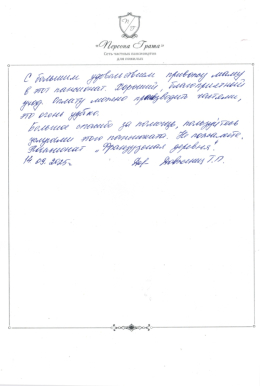 «Передовая Грань»
Сеть частных пансионатов
для пожилых
С большим удовольствием привожу маму
в этот пансионат. Хороший, благоприятный
уход. Оплату можно производить частями,
это очень удобно.
Большое спасибо за помощь, пользуйтесь
услугами этого пансионата. Не пожалеете.
Пансионат „Французская деревня".
14.09.2025г.
Т.П.